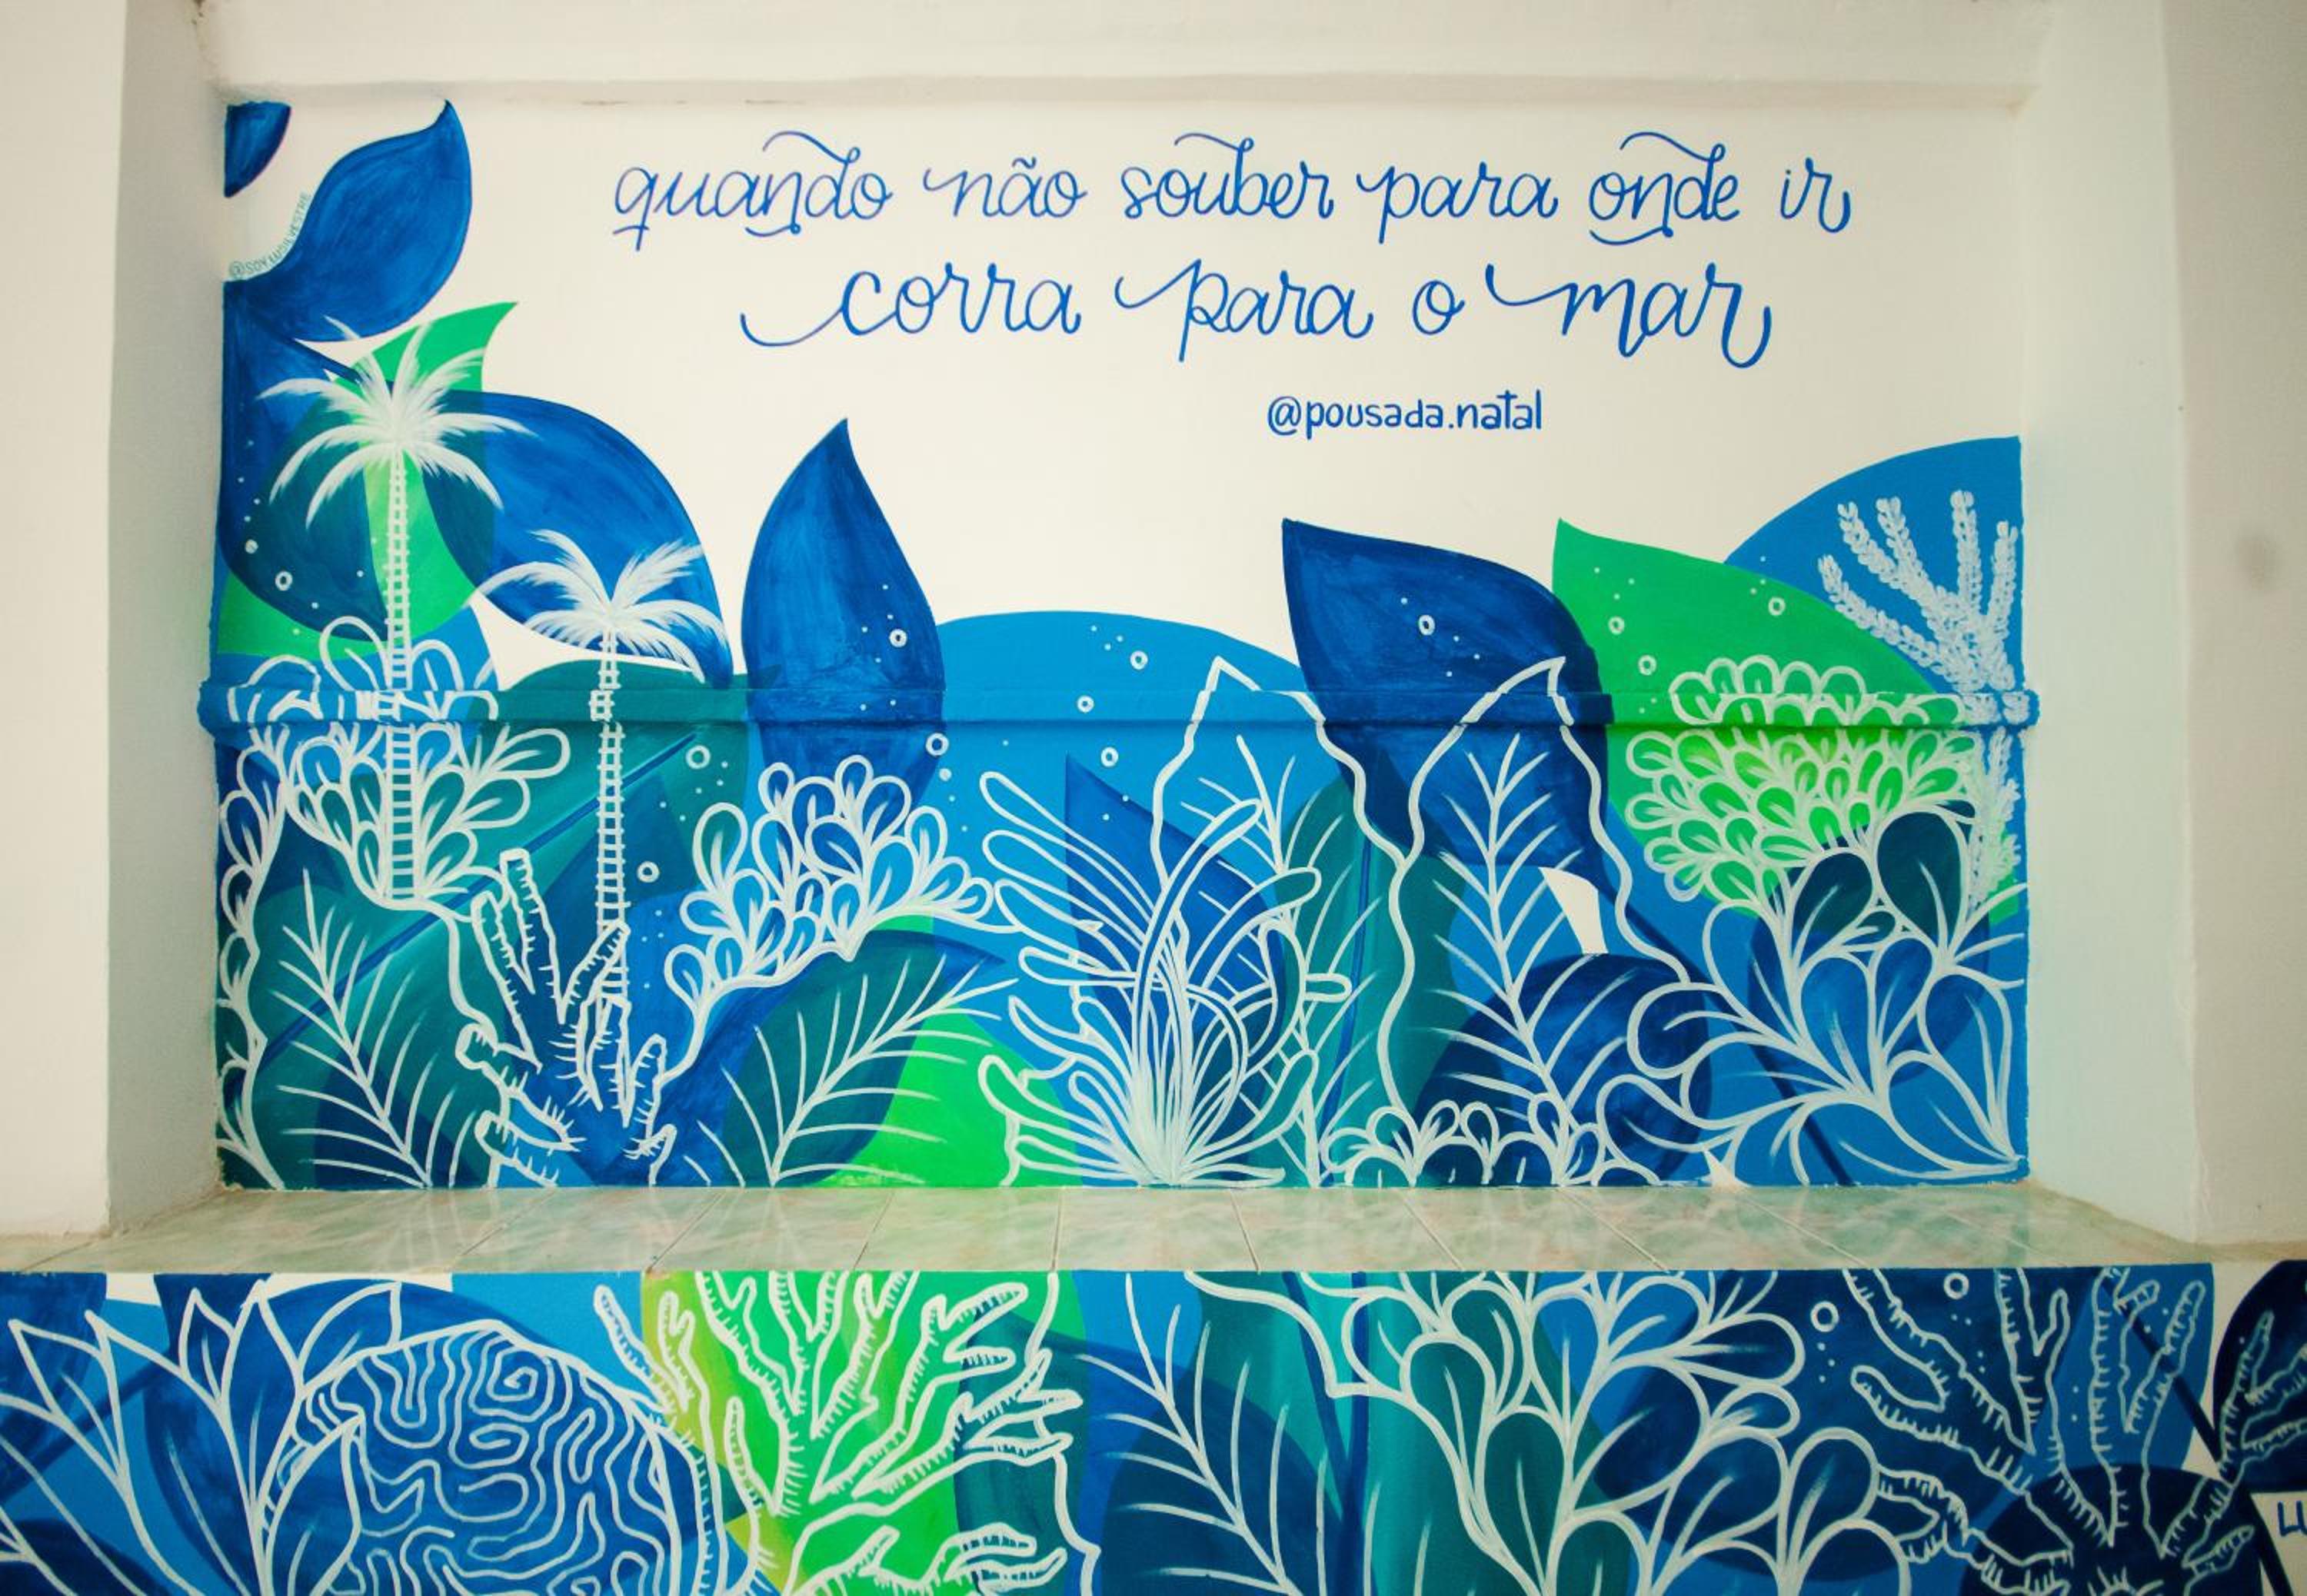 quando não souber para onde ir
corra para o mar
@pousada.natal
@SOYLUSILVESTRE
LU